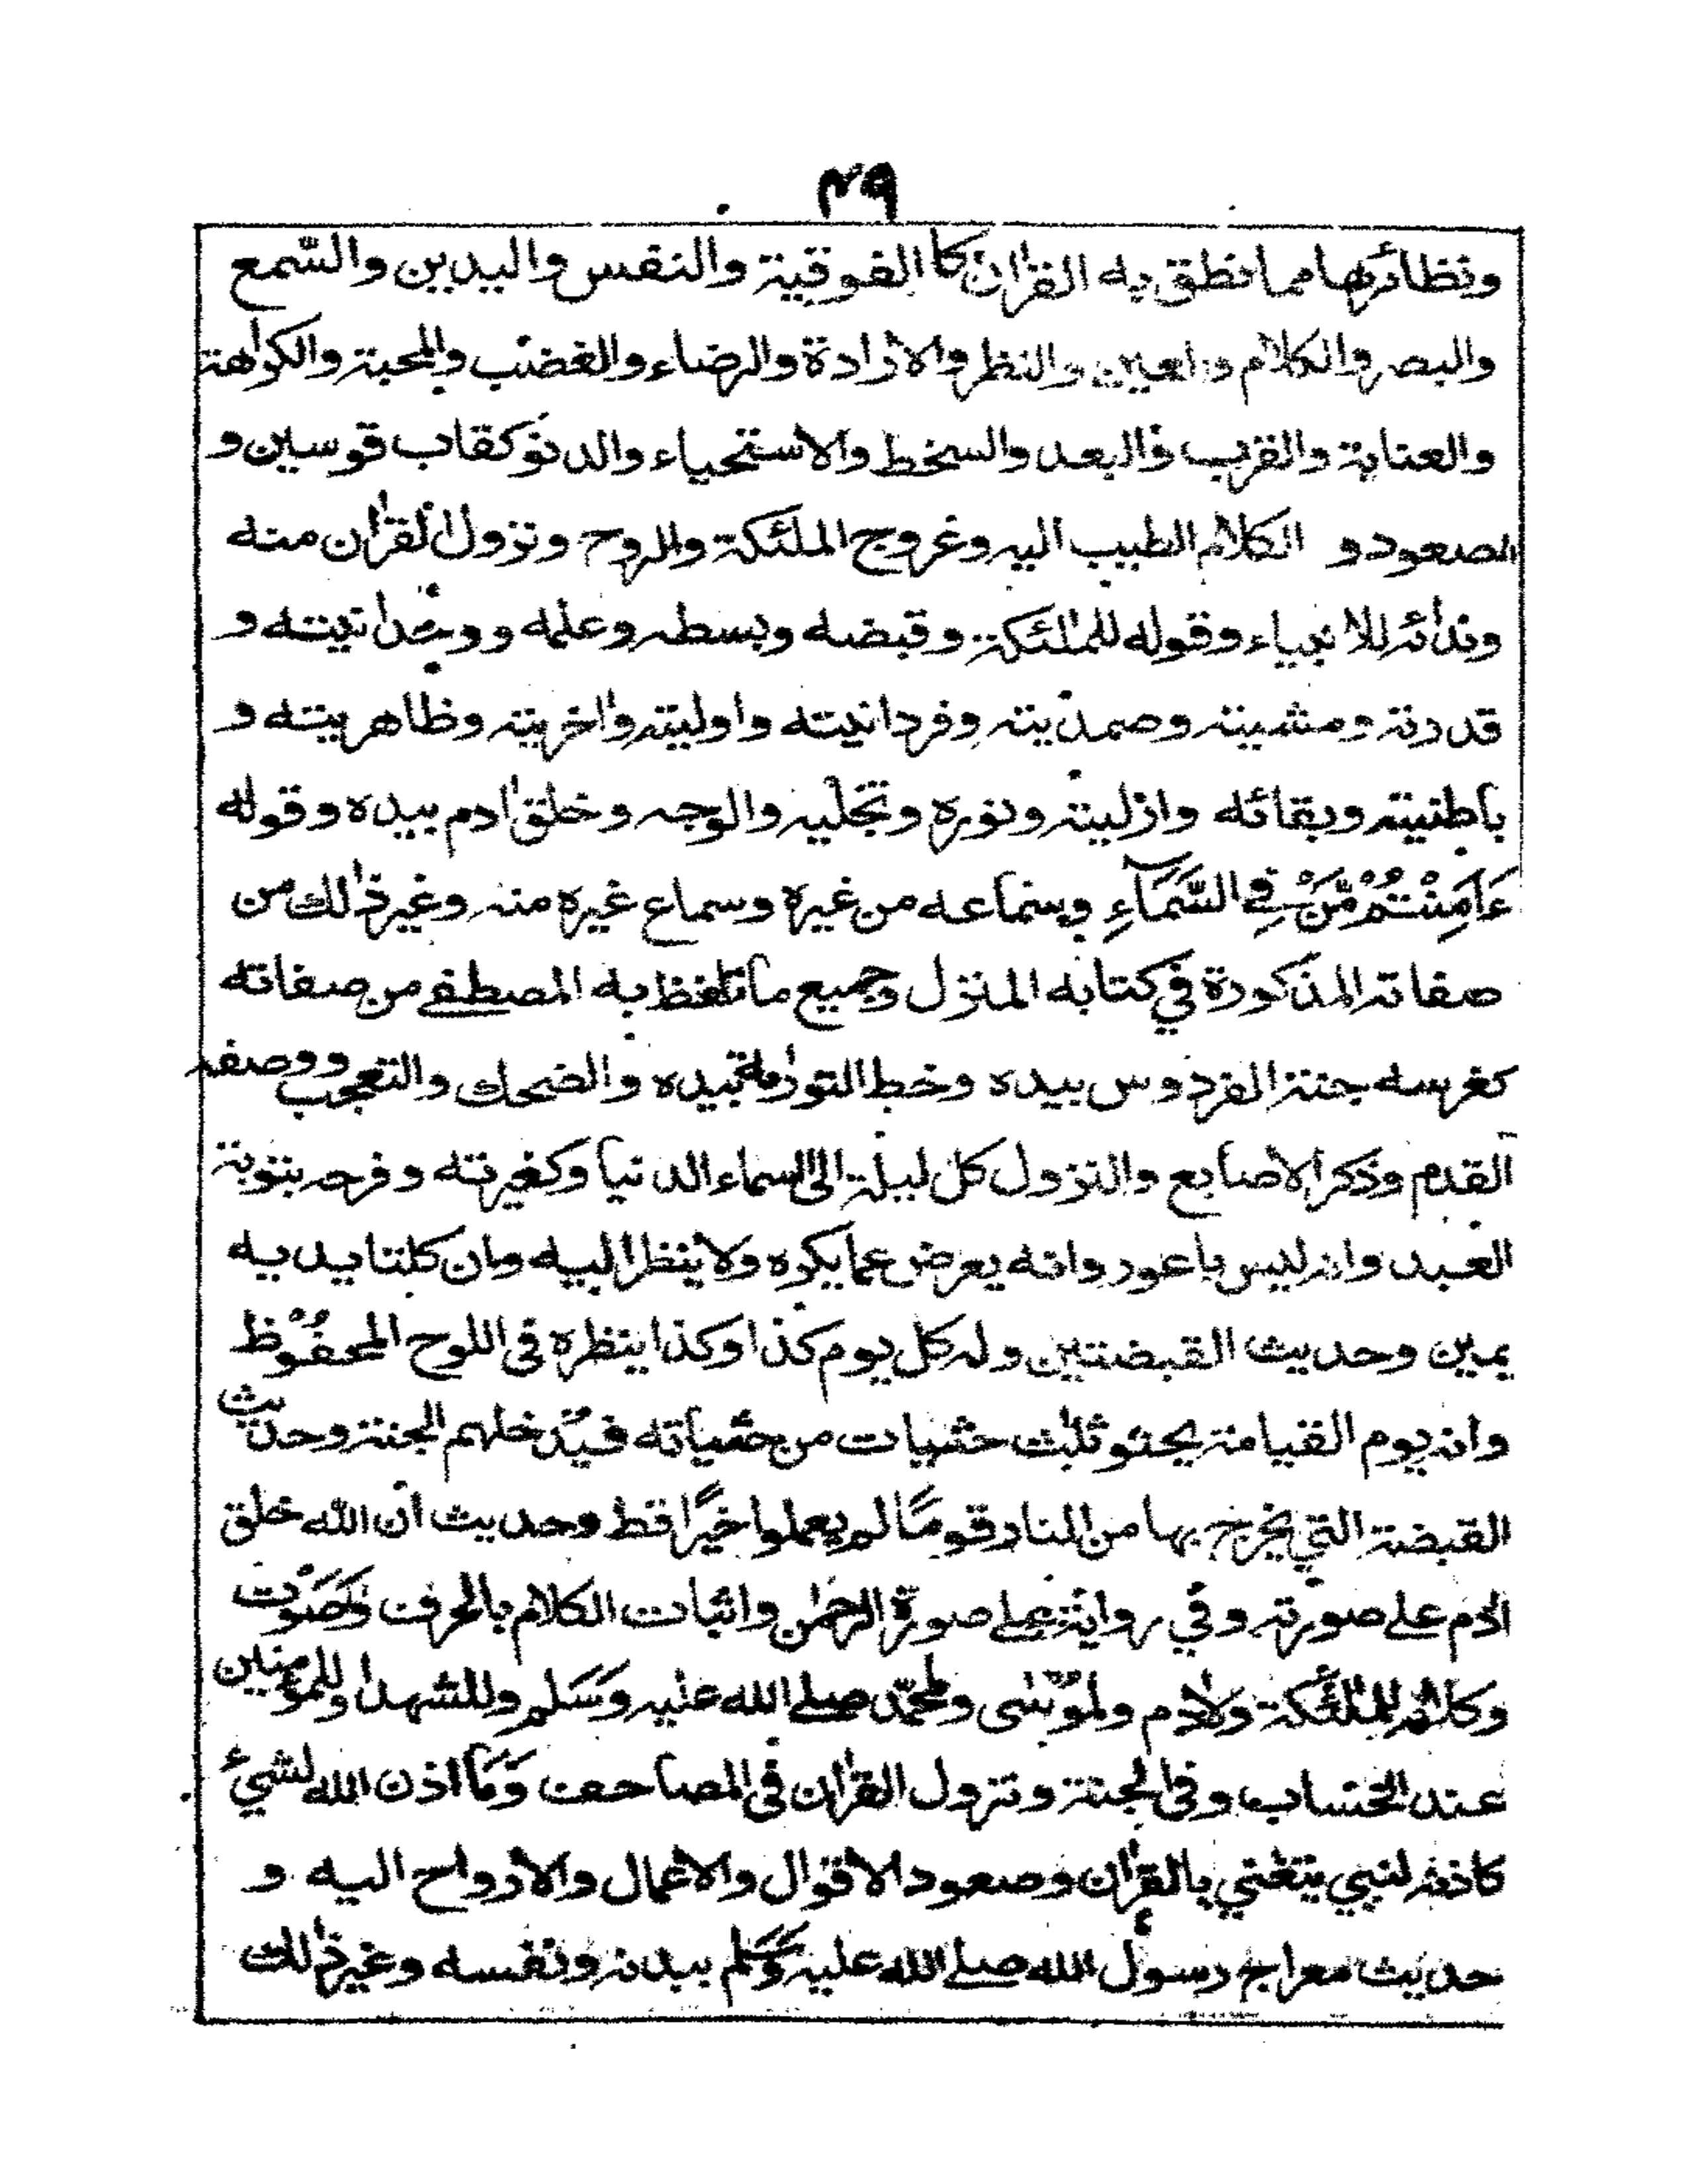 ٤٩
ونظائرها مما نطق به القرآن كالفوقية والنفس واليدين والسّمع
والبصر والكلام والعين والنظر والارادة والرضاء والغضب والمحبة والكراهة
والعناية والقرب والبعد والسخط والاستحياء والدنو كقاب قوسين و
الصعود و الكلام الطيب اليه وعروج الملئكة والروح ونزول القرآن منه
وندائه للانبياء وقوله للملئكة وقبضه وبسطه وعلمه ووحدانيته و
قدرته ومشيته وصمديته وفردانيته واوليته واخريته وظاهريته و
باطنيته وبقائه وازليته ونوره وتجليه والوجه وخلق ادم بيده وقوله
ءَاَمِنْتُمْ مَّنْ فِي السَّمَآءِ وسماعه من غيره وسماع غيره منه وغير ذلك من
صفاته المذكورة في كتابه المنزل وجميع ما تلفظ به المصطفے من صفاته
كغرسه جنة الفردوس بيده وخط التورٰىة بيده والضحك والتعجب ووصفه
القدم وذكر الاصابع والنزول كل ليلة الى السماء الدنيا وكغيرته وفرحه بتوبة
العبد وانه ليس باعور وانه يعرض عما يكره ولا ينظر اليه وان كلتا يديه
يمين وحديث القبضتين وله كل يوم كذا وكذا ينظره فى اللوح المحفُوْظ
وانه يوم القيامة يحثو ثلٰث حثيات من حثياته فيدخلهم الجنة وحديث
القبضة التي يخرج بها من النار قومًا لم يعملوا خيرًا قط وحديث ان الله خلق
اٰدم علے صورته وفي رواية علے صورة الرحمٰن واثبات الكلام بالحرف وَصَوْت
وكلامه للملٰئكة ولاٰدم ولمُوْسٰى ولمحمّد صلے الله عليه وَسَلم وللشهدا وللمؤمنين
عند الحساب وفى الجنة ونزول القرٰان فى المصاحف وَمَا اذن الله لشيئ
كاذنه لنبي يتغني بالقرٰان وصعود الاقوال والاعمال والارواح اليه و
حديث معراج رسول الله صلے الله عليه وَسَلم ببدنه ونفسه وغير ذٰلك